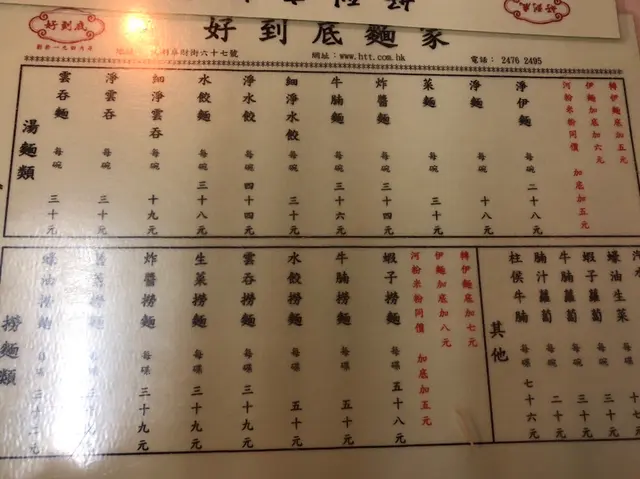 好到底
好到底麵家
財街六十七號
網址：www.htt.com.hk
電話： 2476 2495
湯麵類
雲吞麵 每碗 三十元
淨雲吞 每碗 三十元
細淨雲吞 每碗 十九元
水餃麵 每碗 三十八元
淨水餃 每碗 四十四元
細淨水餃 每碗 三十元
牛腩麵 每碗 三十六元
炸醬麵 每碗 三十元
菜麵 每碗 三十元
淨麵 每碗 十八元
淨伊麵 每碗 二十八元
河粉米粉同價 加底加五元
伊麵加底加六元
轉伊麵加五元
撈麵類
蠔油撈麵 每碟 三十二元
炸醬撈麵 每碟 三十九元
生菜撈麵 每碟 三十九元
雲吞撈麵 每碟 三十九元
水餃撈麵 每碟 五十元
牛腩撈麵 每碟 五十元
蝦子撈麵 每碟 五十八元
河粉米粉同價 加底加五元
伊麵加底加八元
轉伊麵加七元
其他
柱侯牛腩 每碗 七十六元
腩汁蘿蔔 每碗 二十元
牛腩蘿蔔 每碗 三十元
蝦子蘿蔔 每碗 三十元
蠔油生菜 每碟